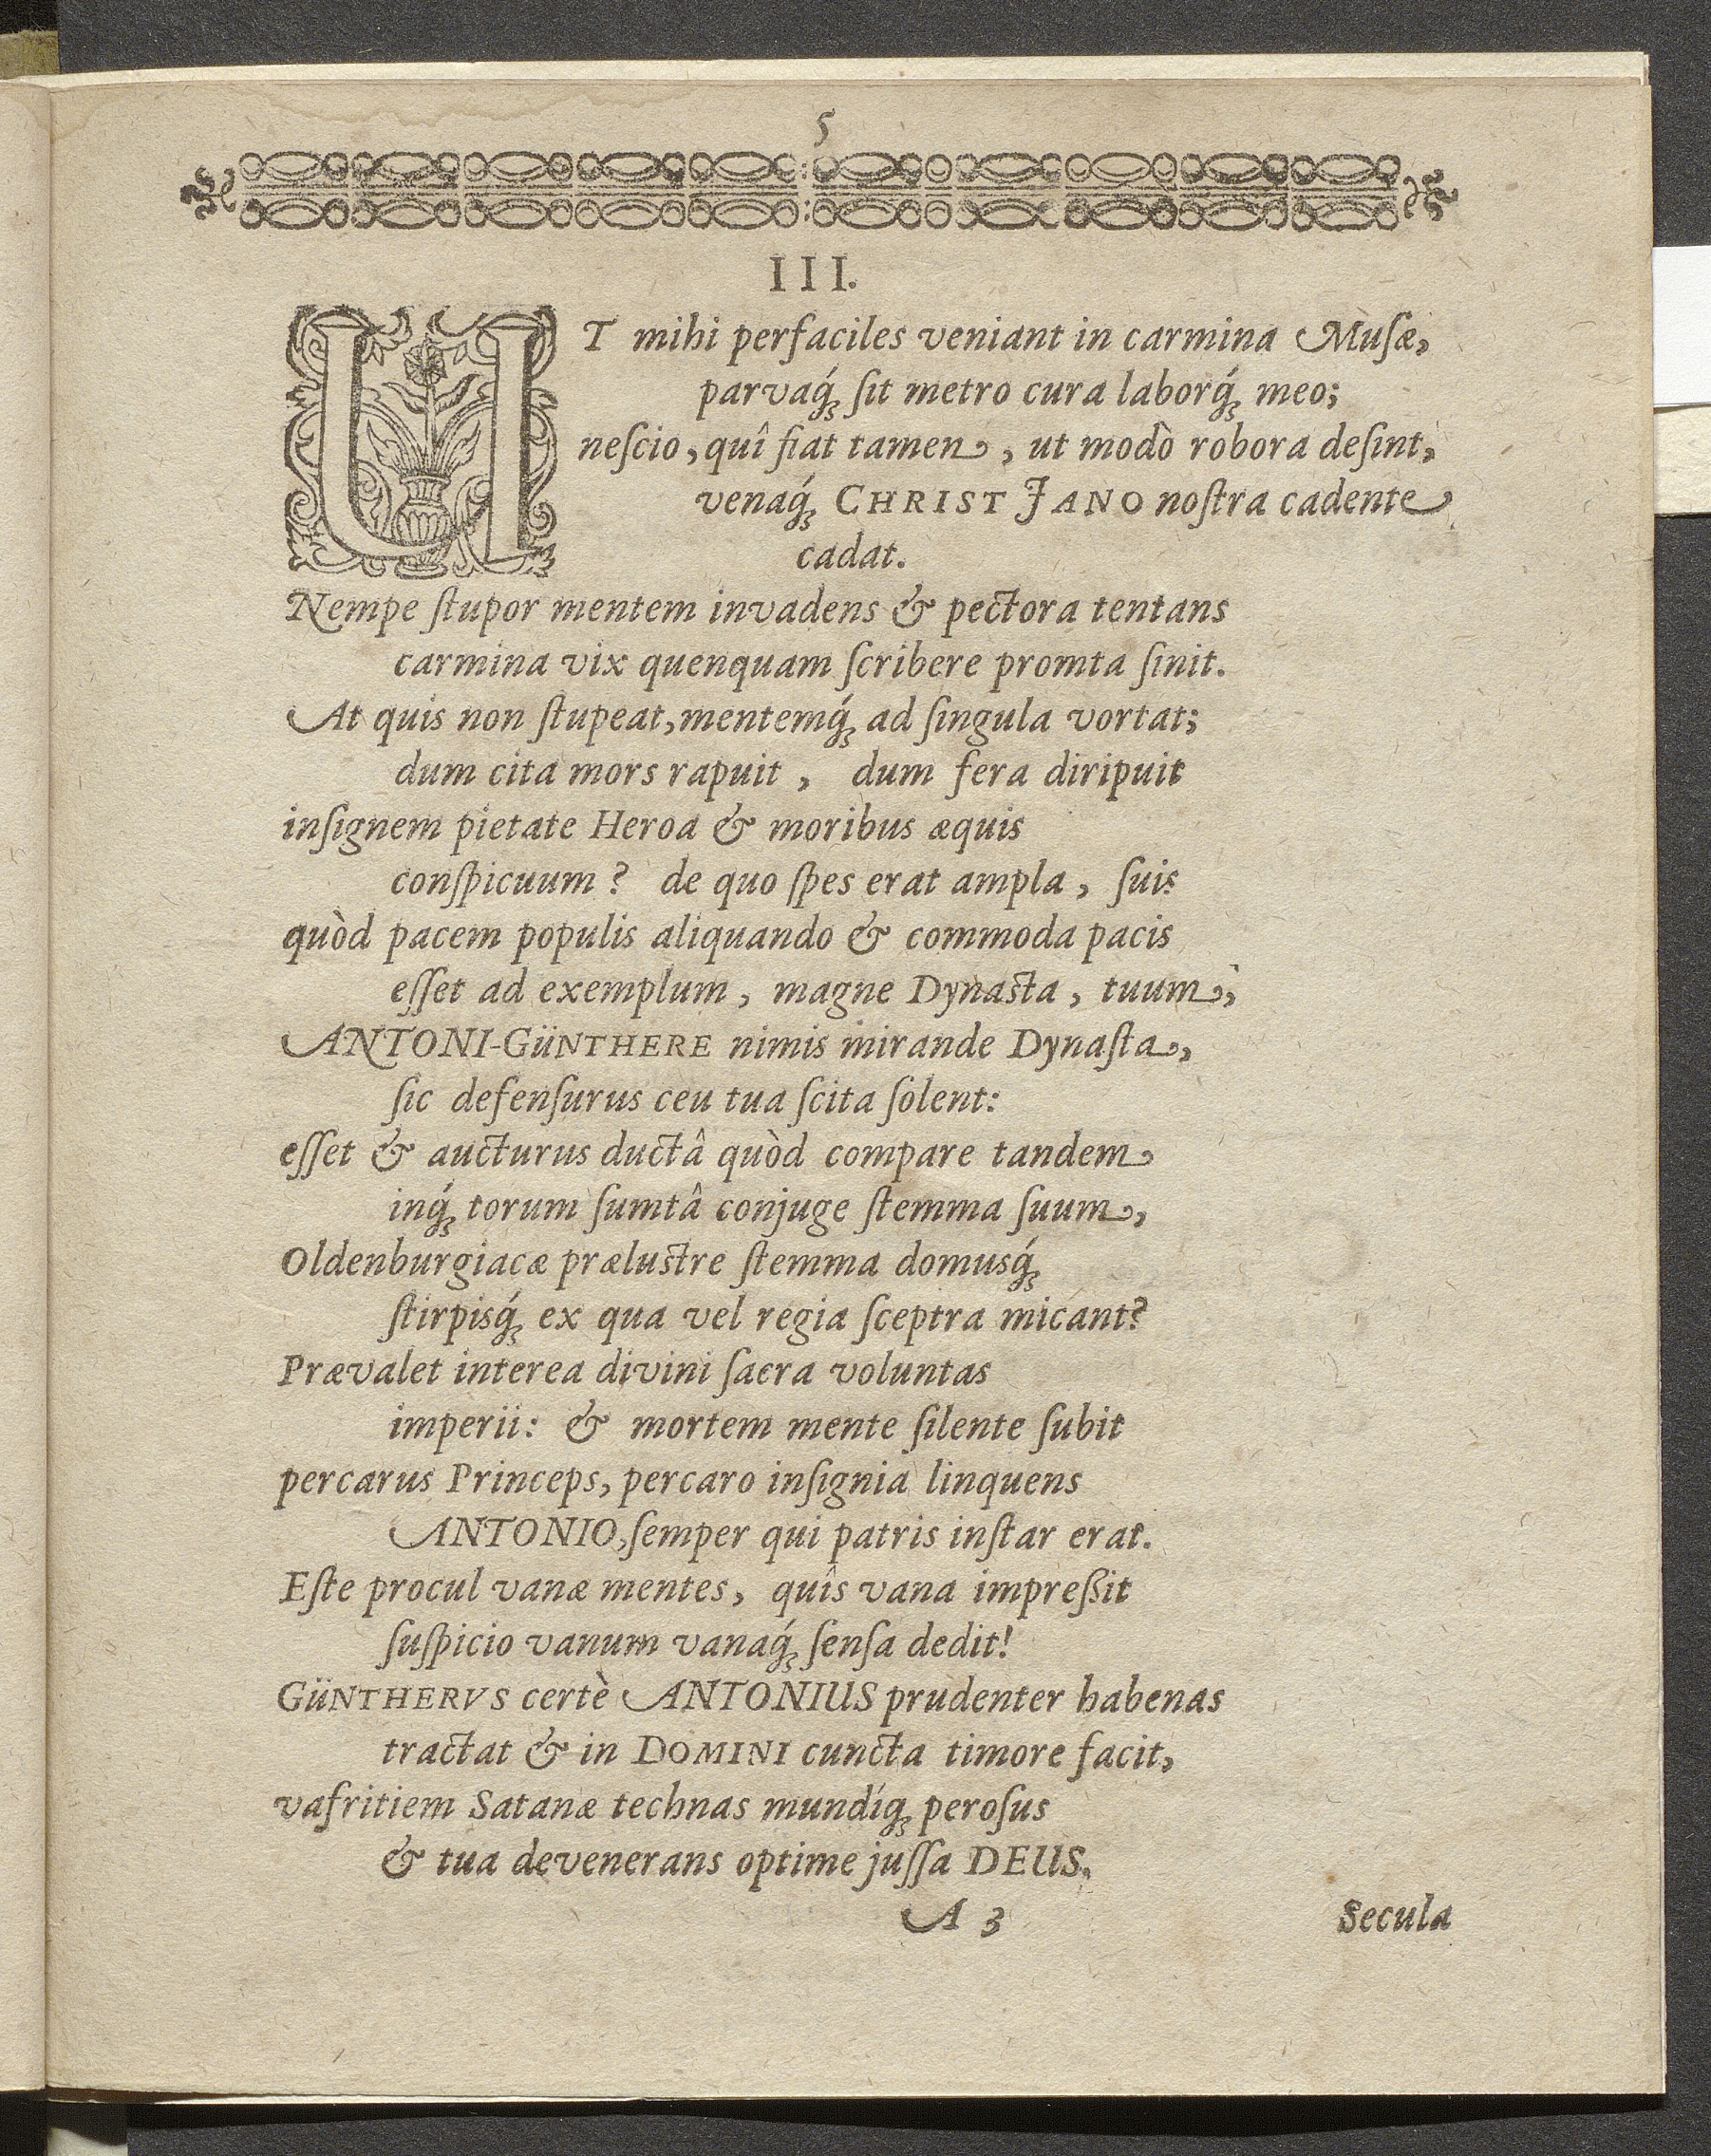 5
III.
UT mihi perfaciles veniant in carmina Muſæ,
parvaq́ꝫ ſit metro cura laborq́ꝫ meo;
neſcio, quî fiat tamen, ut modò robora deſint,
venaq́ꝫ CHRISTJANO noſtra cadente
cadat.
Nempe ſtupor mentem invadens & pectora tentans
carmina vix quenquam ſcribere promta ſinit.
At quis non ſtupeat, mentemq́ꝫ ad ſingula vortat;
dum cita mors rapuit, dum fera diripuit
inſignem pietate Heroa & moribus æquis
conſpicuum? de quo ſpes erat ampla, ſuis
quòd pacem populis aliquando & commoda pacis
eſſet ad exemplum, magne Dynaſta, tuum,
ANTONI-GüNTHERE nimis mirande Dynaſta,
ſic defenſurus ceu tua ſcita ſolent:
eſſet & aucturus ductâ quòd compare tandem
inq́ꝫ torum ſumtâ conjuge ſtemma ſuum,
Oldenburgiacæ præluſtre ſtemma domusq́ꝫ
ſtirpisq́ꝫ ex qua vel regia ſceptra micant?
Prævalet interea divini ſacra voluntas
imperii: & mortem mente ſilente ſubit
percarus Princeps, percaro inſignia linquens
ANTONIO, ſemper qui patris inſtar erat.
Eſte procul vanæ mentes, quîs vana impreßit
ſuſpicio vanum vanaq́ꝫ ſenſa dedit!
GüNTHERVS certè ANTONIUS prudenter habenas
tractat & in DOMINI cuncta timore facit,
vafritiem Satanæ technas mundíqꝫ peroſus
& tua devenerans optime juſſa DEUS.
A 3
Secula